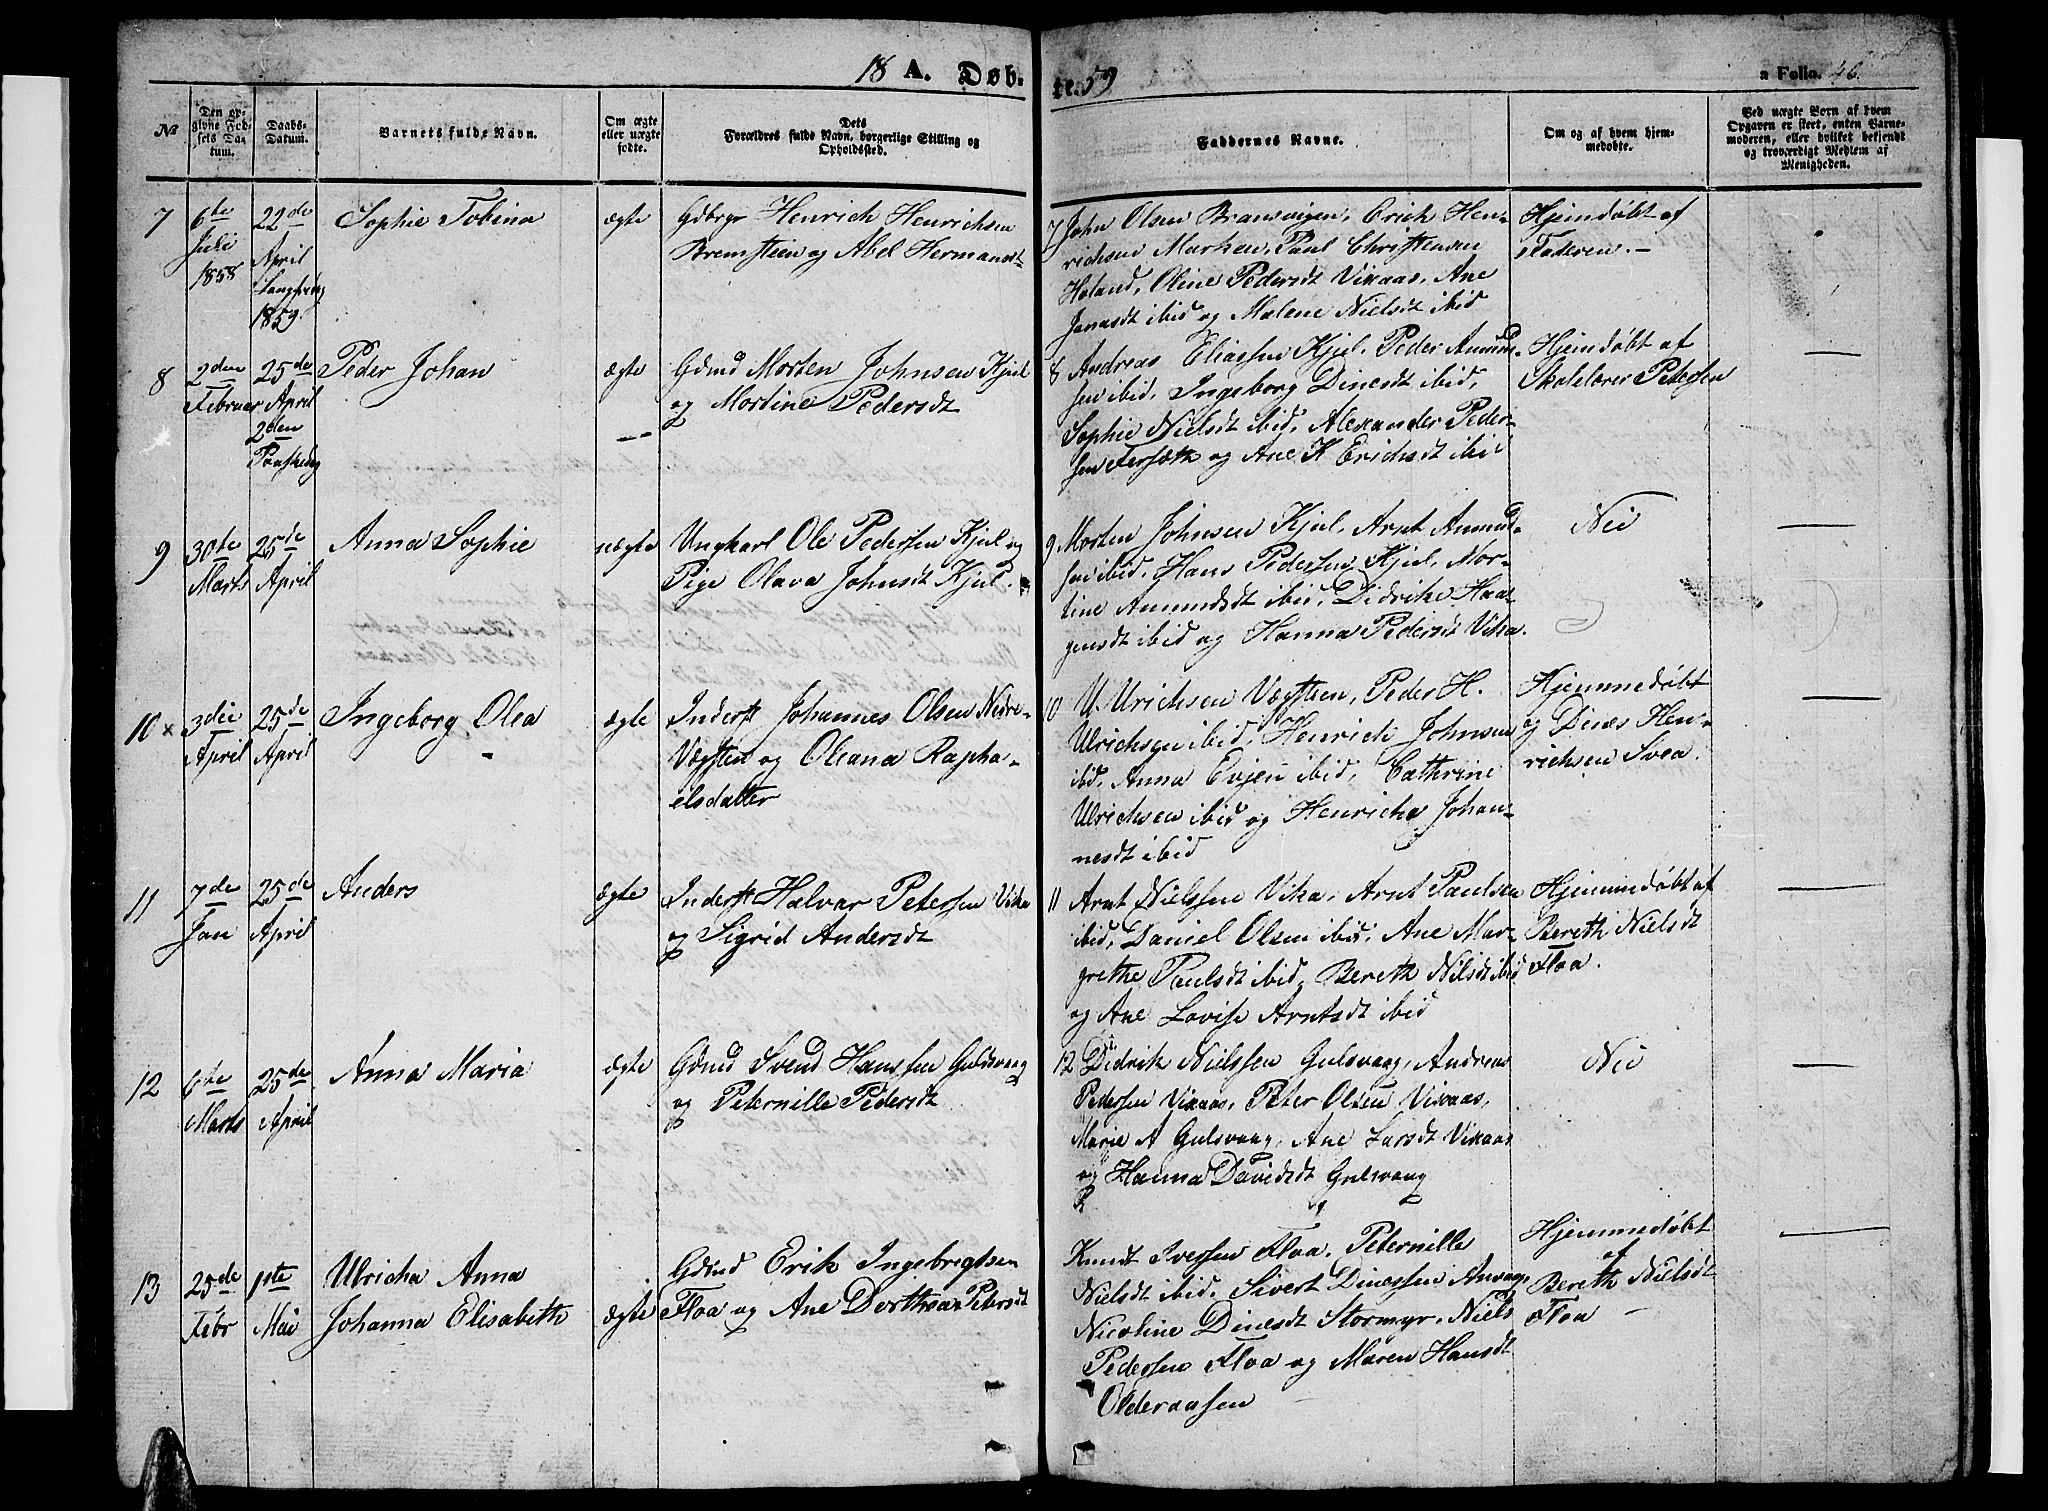 18 A. Døb-
te. 59
a Folio. 46.
No
Den opgivne Fødsels Datum.
Daabs-Datum.
Barnets fulde Navn.
Om ægte eller uægte fødte.
Dets Forældres fulde Navn, borgerlige Stilling og Opholdssted.
Faddernes Navne.
Om og af hvem hjemmedøbte.
Ved uægte Børn af hvem Opgaven er skeet, enten Barnemoderen, eller hvilket bekjendt og troværdigt Medlem af Menigheden.
7
6te
Juli
1858
22de
April
Langfredag
1859.
Sophie Tobina
ægte
Gdbrgr Henrich Henrichsen
Bremstien og Abel Hermansdt
7 John Olsen Bransvigen, Erich Hen-
richsen Marken, Paul Christensen
Holand, Oline Pedersdt Vikaas, Ane
Jonasdt ibid og Malene Nielsdt ibid
Hjemdøbt af
Faderen.-
8
2den
Februar
25de
April
2den
Paaskedag
Peder Johan
ægte
Gdmd Morten Johnsen Kjul
og Mortine Pedersdt
8 Andreas Eliassen Kjul, Peder Amund-
sen ibid, Ingeborg Dinesdt ibid,
Sophie Nielsdt ibid, Alexander Peder-
sen Forsæth og Ane K Erichsdt ibid
Hjemdøbt af
Skolelærer Petersen
9
30te
Marts
25de
April
Anna Sophie
uægte
Ungkarl Ole Pedersen Kjul og
Pige Olava Johnsdt Kjul.
9 Morten Johnsen Kjul, Arnt Amund-
sen ibid, Hans Pedersen Kjul, Mor-
tine Amundsdt ibid, Didrike Haa-
gensdt ibid og Hanna Pedersdt Vika.
Nei
10 x
3die
April
25de
April
Ingeborg Olea
ægte
Inderst Johannes Olsen Nedre-
Vægsten og Oleana Rapha-
elsdatter
10 U. Urichsen Vægsteen, Peder H.
Ulrichsen ibid, Henrich Johnsen
ibid, Anna Evjen ibid, Cathrine
Ulrichsen ibid og Henricha Johan-
nesdt ibid
Hjemmedøbt
og Dines Hen-
richsen Svea.
11
7de
Jan
25de
April
Anders
ægte
Inderst Halvar Petersen Vika
og Sigrid Andersdt
11 Arnt Nielssen Vika, Arnt Paulsen
ibid, Daniel Olsen ibid, Ane Mar-
grethe Paulsdt ibid, Bereth Nilsdt ibid
og Ane Lovise Arntsdt ibid
Hjemmedøbt af
Bereth Nielsdt
Floa.
12
6te
Marts
25de
April
Anna Maria
ægte
Gdmd Svend Hanssen Gulsvaag
og Peternille Pedersdt
12 Didrik Nielssen Gulsvaag, Andreas
Pedersen Vikaas, Peter Olsen Vikaas,
Marie A Gulsvaag, Ane Larsdt Vikaas
og Hanna Davidsdt Gulsvaag
Nei
13
25de
Febr
1ste
Mai
Ulricha Anna
Johanna Elisabeth
ægte
Gdmd Erik Ingebrigtsen
Floa og Ane Dorthea Petersdt
Knudt Iversen Floa, Peternille
Nielsdt ibid, Sivert Dinessen
Nicoline Dinesdt Stormyr, Niels
Pedersen Floa og Maren Hansdt
Olderaasen
Hjemmedøbt
af
Bereth Nielsdt
Floa -